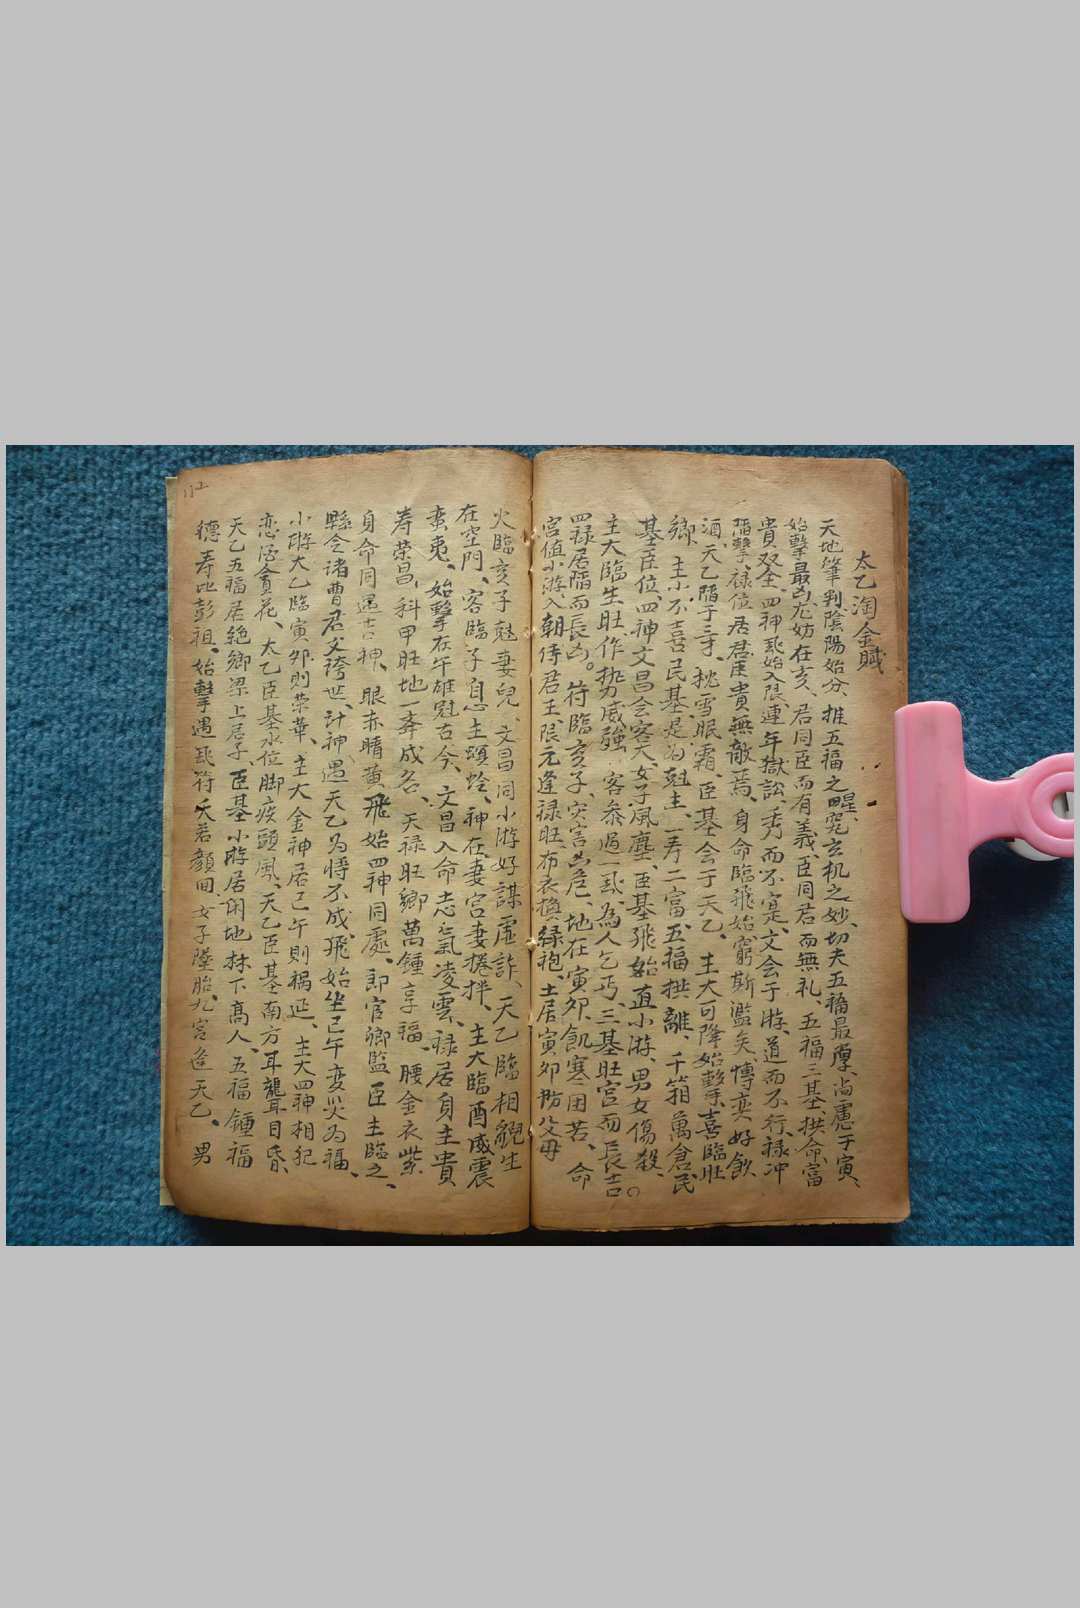 太乙淘金賦
天地肇判陰陽始分、推五福之 究玄机之妙、切夫五福最厚、尚慮于寅、
始擊最凶尤妨在亥、君同臣而有義、臣同君而無礼、五福三基拱命富
貴双全、四神 始入限、連年獄訟、秀而不寔、文会于游、道而不行、禄冲
掃擊、禄位居君臣貴無敵焉、身命臨飛始窮斯濫矣、博奕好飲
酒、天乙陷于 、枕雪眠霜、臣基会于天乙、主大可降始擊、喜臨旺
鄉、主 不喜民基、是為尅主、一寿二富、五福拱離、千箱萬倉民
基臣位、四神文昌会客大、女子風塵、臣基飛始直小游、男女傷殺、
主大臨生旺、作势威強、客参過一 、為人乞丐、三基旺宫而長吉。
四禄居陷而長凶。符臨亥子、灾害 危、地在寅夘、飢寒困苦、命
宫值小游、入朝侍君王、限元逢禄旺、布衣换緑袍、土居寅夘妨父母
火臨亥子尅妻兒、文昌同小游好謀虚詐、天乙臨相貌生
在空門、客臨子息主螟蛉、神在妻宫妻捲拌、主大臨酉威震
蛮夷、始擊在午雄冠古今、文昌入命志氣凌雲、禄居負主貴
寿荣昌、科甲旺地一奔成名、天禄旺鄉萬鍾享福、腰金衣紫
身命同遇吉神、眼赤睛黄飛始四神同處、郎官卿監臣主臨之、
縣令诸曹君父誇世、計神遇天乙为恃不成、飛始坐巳午变災为福、
小游大乙臨寅夘則荣華、主大金神居巳午則禍延、主大四神相犯
恋酒貪花、太乙臣基水位脚疾頭風、天乙臣基南方耳聾目昏、
天乙五福居絶鄉梁上君子、臣基小游居闲地林下高人、五福鍾福
德寿比彭祖、始擊遇 符夭若顔回、女子墮胎九宫逢天乙、男